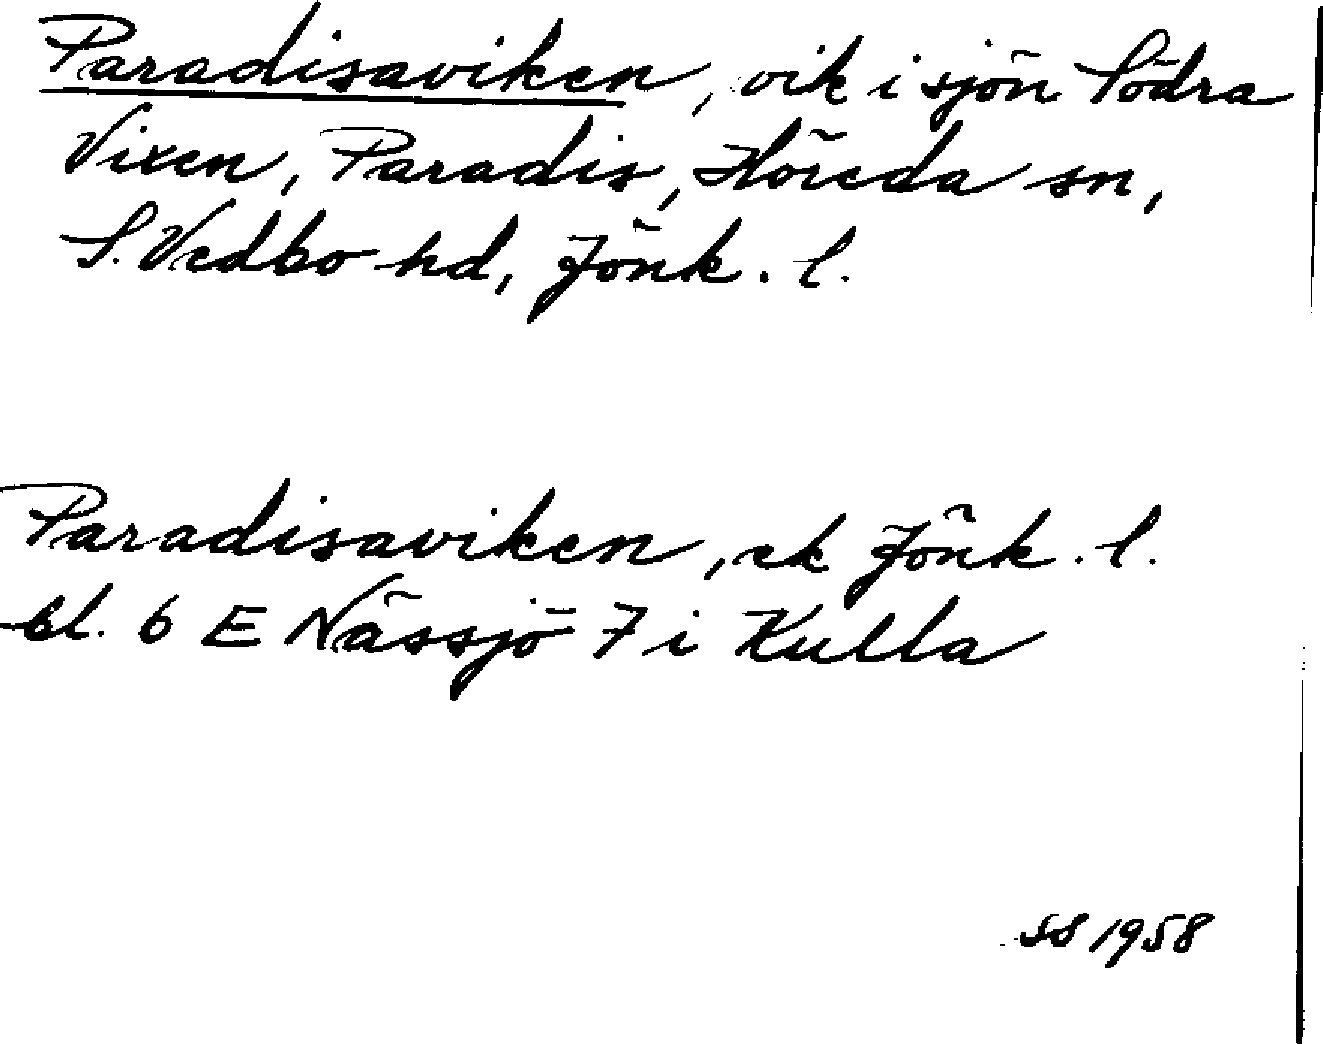 Paradisaviken, vik i sjön Södra
Vixen, Paradis, Höreda sn,
S. Vedbo hd, Jönk. l.
Paradisaviken, ek Jönk. l.
bl. 6 E Nässjö 7 i Kulla
SS 1958